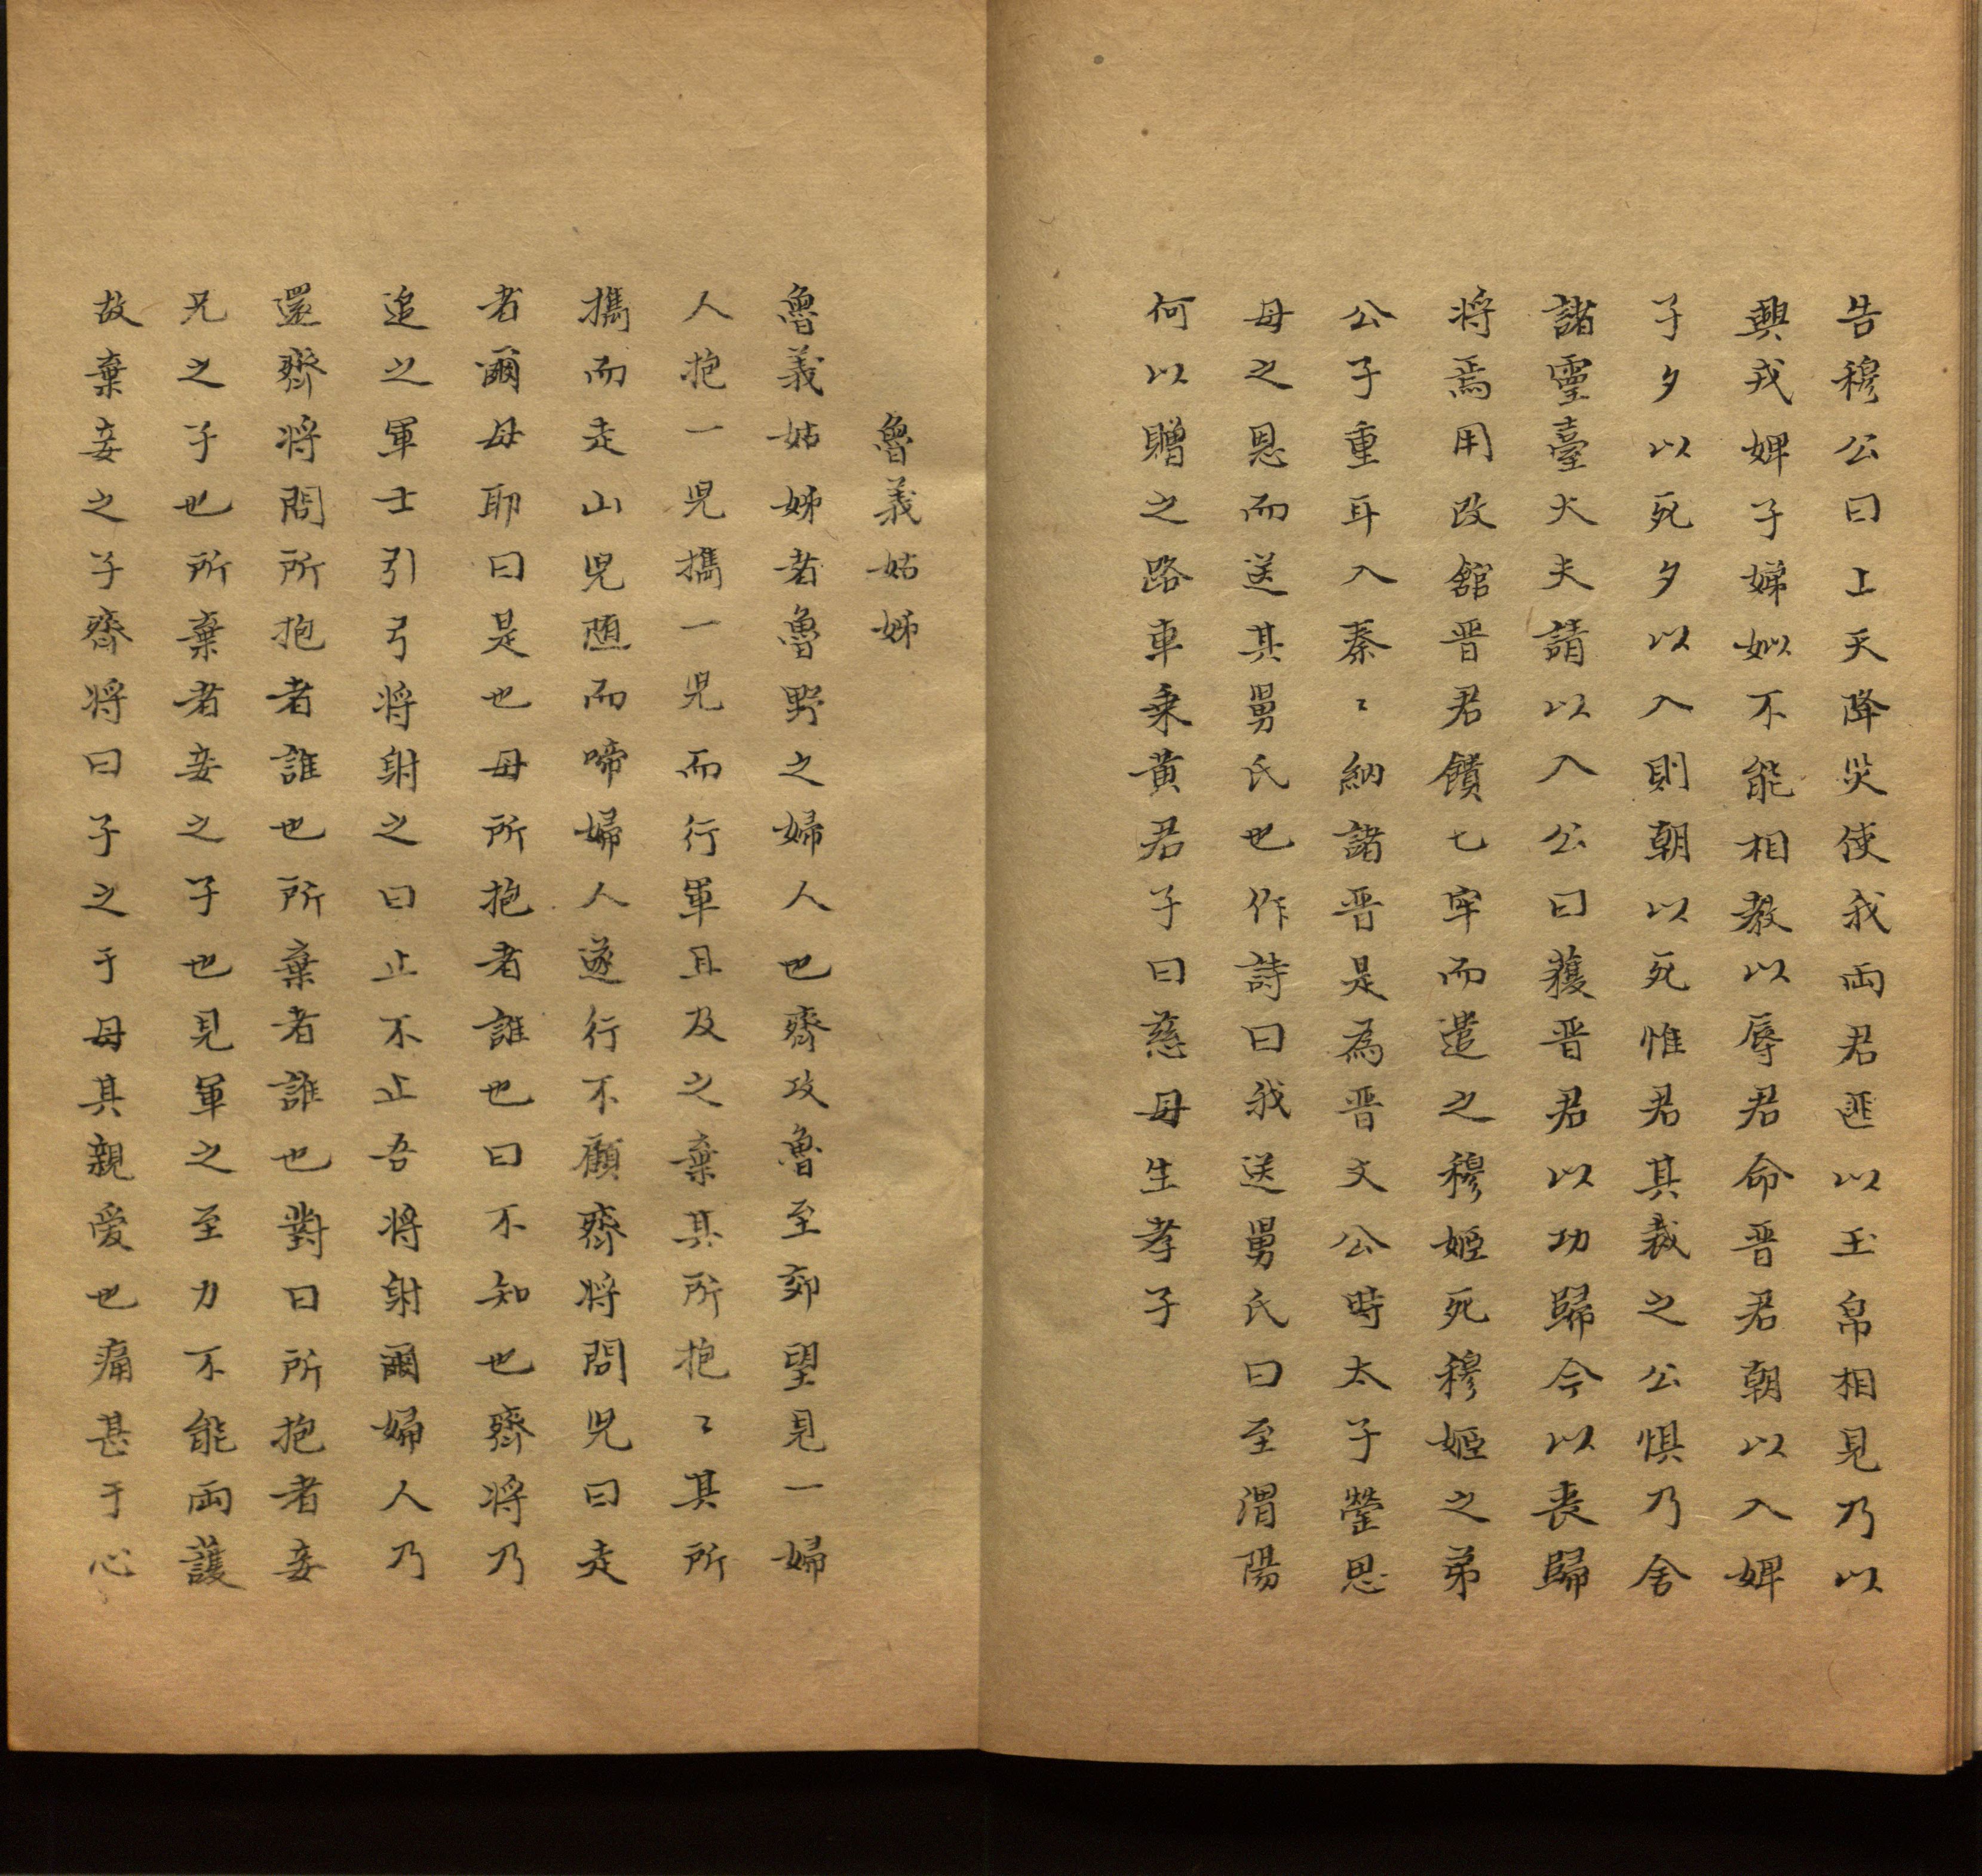 告穆公曰上天降災使我両君匪以玉帛相見乃以
興戎婢子娣姒不能相教以辱君命晋君朝以入婢
子夕以死夕以入則朝以死惟君其裁之公惧乃舍
諸靈臺大夫請以入公曰獲晋君以功歸今以丧歸
将焉用改舘晋君饋七牢而遣之穆姬死穆姬之弟
公子重耳入秦〻納諸晋是為晋文公時太子罃思
母之恩而送其舅氏也作詩曰我送舅氏曰至渭陽
何以贈之路車乗黄君子曰慈母生孝子
魯義姑姊
魯義姑姊者魯野之婦人也齊攻魯至郊望見一婦
人抱一児攜一児而行軍且及之棄其所抱〻其所
攜而走山児随而啼婦人遂行不顧齊将問児曰走
者爾母耶曰是也母所抱者誰也曰不知也齊将乃
追之軍士引弓将射之曰止不止吾将射爾婦人乃
還齊将問所抱者誰也所棄者誰也對曰所抱者妾
兄之子也所棄者妾之子也見軍之至力不能両護
故棄妾之子齊将曰子之于母其親愛也痛甚于心